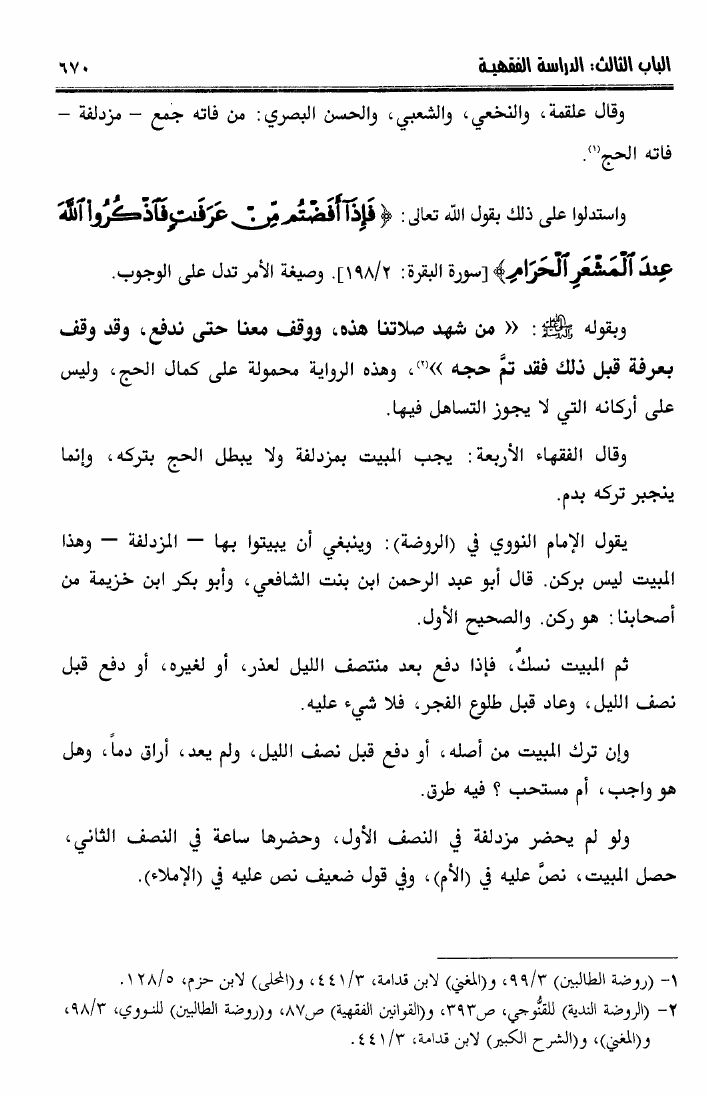 الباب الثالث: الدراسة الفقهية ٦٧٠
وقال علقمة، والنخعي، والشعبي، والحسن البصري: من فاته جمع – مزدلفة –
فاته الحج(١).
واستدلوا على ذلك بقول الله تعالى: ﴿فَإِذَآ أَفَضْتُم مِّنْ عَرَفَٰتٍ فَٱذْكُرُوا۟ ٱللَّهَ
عِندَ ٱلْمَشْعَرِ ٱلْحَرَامِ﴾ [سورة البقرة: ١٩٨/٢]. وصيغة الأمر تدل على الوجوب.
وبقوله ﷺ: « من شهد صلاتنا هذه، ووقف معنا حتى ندفع، وقد وقف
بعرفة قبل ذلك فقد تمَّ حجه »(٢)، وهذه الرواية محمولة على كمال الحج، وليس
على أركانه التي لا يجوز التساهل فيها.
وقال الفقهاء الأربعة: يجب المبيت بمزدلفة ولا يبطل الحج بتركه، وإنما
ينجبر تركه بدم.
يقول الإمام النووي في (الروضة): وينبغي أن يبيتوا بها – المزدلفة – وهذا
المبيت ليس بركن. قال أبو عبد الرحمن ابن بنت الشافعي، وأبو بكر ابن خزيمة من
أصحابنا: هو ركن. والصحيح الأول.
ثم المبيت نسكٌ، فإذا دفع بعد منتصف الليل لعذر، أو لغيره، أو دفع قبل
نصف الليل، وعاد قبل طلوع الفجر، فلا شيء عليه.
وإن ترك المبيت من أصله، أو دفع قبل نصف الليل، ولم يعد، أراق دماً، وهل
هو واجب، أم مستحب ؟ فيه طرق.
ولو لم يحضر مزدلفة في النصف الأول، وحضرها ساعة في النصف الثاني،
حصل المبيت، نصَّ عليه في (الأم)، وفي قول ضعيف نص عليه في (الإملاء).
١– (روضة الطالبين) ٩٩/٣، و(المغني) لابن قدامة، ٤٤١/٣، و(المحلى) لابن حزم، ١٢٨/٥.
٢– (الروضة الندية) للقنُّوجي، ص٣٩٣، و(القوانين الفقهية) ص٨٧، و(روضة الطالبين) للنووي، ٩٨/٣،
و(المغني)، و(الشرح الكبير) لابن قدامة، ٤٤١/٣.